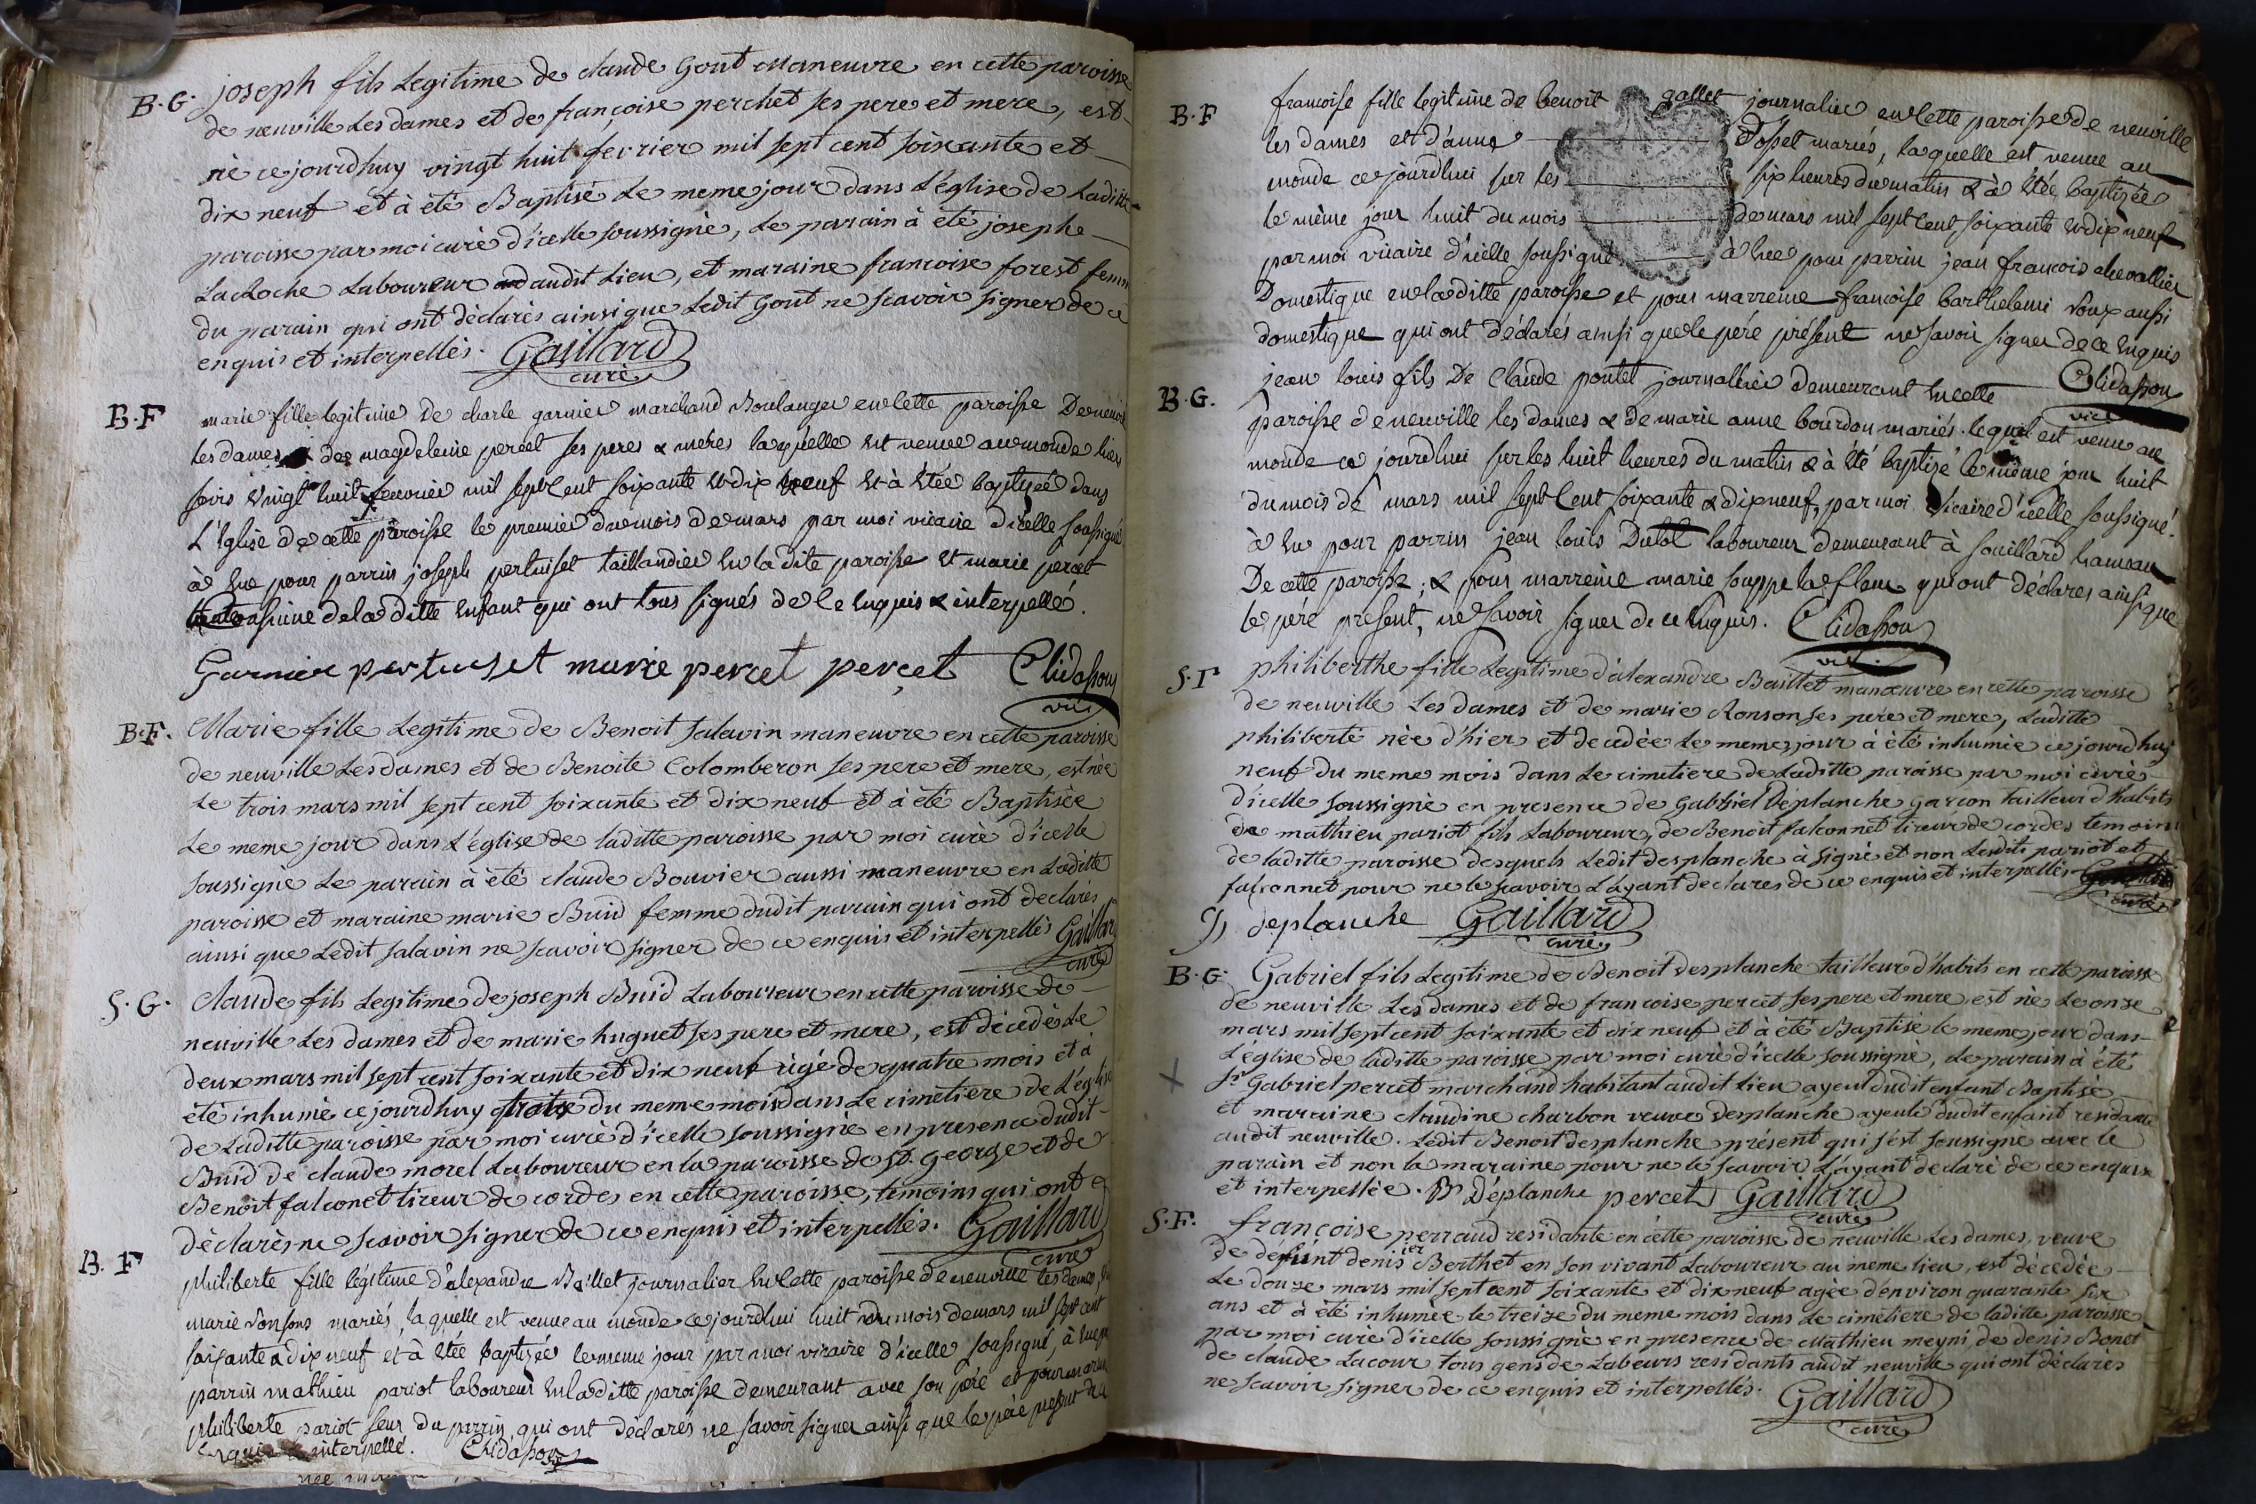 B.G. joseph fils Legitime de claude Gout Maneuvre en cette paroisse
de neuville Les dames et de françoise perchet ses pere et mere, est
né ce jourdhuy vingt huit fevrier mil sept cent soixante et
dix neuf et à été Baptisé Le meme jour dans L'église de Laditte
paroisse par moi curè d'icelle soussignè, Le parain à été josephe
LaRoche Laboureur audit Lieu, et maraine francoise forest femme
du parain qui ont dèclarès ainsi que Ledit Gout ne scavoir signer de ce
enquis et interpellès. Gaillard
curè
B.F marie fille legitime de charle garnier marchand Boulanger en cette paroisse De neuville
les dames & de magdeleine percet ses peres & meres laquelle est venue au monde hier
soirs vingt huit fevrier mil sept cent soixante et dix neuf et à etée baptisée dans
L'Eglise de cette paroisse le premier du mois de mars par moi vicaire d'icelle soussigné
à eue pour parrin joseph pertuiset taillandier en la dite paroisse et marie percet
cousine de la ditte enfant qui ont tous signés de ce enquis & interpellé.
Garnier pertuset marie percet perçet Clidassou
vic
B.F. Marie fille Legitime de Benoit salavin maneuvre en cette paroisse
de neuville Les dames et de Benoite Colomberon ses pere et mere, est née
Le trois mars mil sept cent soixante et dix neuf et à été Baptisèe
Le meme jour dans L'église de laditte paroisse par moi curè d'icelle
soussignè Le parain à été claude Bouvier aussi maneuvre en Laditte
paroisse et maraine marie Buid femme dudit parain qui ont declarès
ainsi que Ledit salavin ne scavoir signer de ce enquis et interpellès Gaillard
curè
S.G. Claude fils Legitime de joseph Buid Laboureur en cette paroisse de
neuville Les dames et de marie huguet ses pere et mere, est dècèdè Le
deux mars mil sept cent soixante et dix neuf agé de quatre mois et à
été inhumè ce jourdhuy quatre du meme mois dans Le cimetiere de L'eglise
de Laditte paroisse par moi curè d'icelle soussignè en presence dudit
Buid de claude morel Laboureur en la paroisse de St. George et de
Benoit falconet tireur de cordes en cette paroisse, temoins qui ont
dèclarès ne scavoir signer de ce enquis et interpellès. Gaillard
curè
B. F philiberte fille légitime d'alexandre Baillet journalier en cette paroisse de neuville les dames
marie Ronsons mariés, laquelle est venue au monde ce jourd'hui huit du mois de mars mil sept cent
soixante & dix neuf et à etée baptisée le meme jour par moi vicaire d'icelle soussigné, à eue
parrin mathieu pariot laboureur en laditte paroisse demeurant avec son père et pour
philiberte pariot seur du parrin qui ont declarés ne savoir signer ainsi que le père present de ce
enquis & interpellé. Clidassou
B.F francoise fille legitime de benoit gallet journalier en cette paroisse de neuville
les dames et d'anne Dosset mariés, laquelle est venue au
monde ce jourdhui sur les six heures du matin & à etée baptizée
le même jour huit du mois de mars mil sept cent soixante et dix neuf
par moi vicaire d'icelle soussigné à eue pour parrin jean francois chevallier
Domestique en laditte paroisse et pour marreine francoise barthelemi aussi
domestique qui ont déclarés ainsi que le père présent ne savoir signer de ce enquis
Clidassou
vic
B.G. jean louis fils De Claude poutet journallier demeurant en cette
paroisse de neuville les dames & De marie anne bourdon mariés. lequel est venu au
monde ce jourdhui sur les huit heures du matin & à été baptizé le même jour huit
du mois de mars mil sept cent soixante & dix neuf, par moi Vicaire d'icelle soussigné.
à eu pour parrin jean louis Dutot laboureur demeurant à souillard hameau
De cette paroisse; & pour marreine marie qui ont déclares ainsi que
le père présent, ne savoir signer de ce enquis. Clidassou
vic.
S.F philiberthe fille Legitime d'alexandre Baillet manœuvre en cette paroisse
de neuville Les dames et de marie Ronson ses pere et mere, Laditte
philiberte nèe d'hier et decedèe Le meme jour à été inhumèe ce jourdhuy
neuf du meme mois dans Le cimetiere de Laditte paroisse par moi curè
d'icelle soussignè en presence de Gabriel Déplanche garcon tailleur d'habits
de mathieu pariot fils Laboureur, de Benoit falconnet tireur de cordes temoins
de laditte paroisse desquels Ledit desplanche à signè et non Lesdits pariot et
falconnet pour ne le scavoir L'ayant declares de ce enquis et interpellès
curè
G deplanche Gaillard
curè
B.G. Gabriel fils Legitime de Benoit desplanche tailleur d'habits en cette paroisse
de neuville Les dames et de francoise percet ses pere et mere est nè Le onze
mars mil sept cent soixante et dix neuf et à été Baptisè le meme jour dans
L'église de laditte paroisse par moi curè d'icelle soussignè, Le parain à été
sr Gabriel percet marchand habitant audit Lieu ayeul dudit enfant Baptise
et maraine claudine charbon veuve desplanche ayeule dudit enfant residante
audit neuville. Ledit Benoit desplanche présent qui s'est soussigne avec le
parain et non la maraine pour ne le scavoir L'ayant declarè de ce enquise
et interpellèe. B Déplanche percet Gaillard
curè
S.F. françoise perraud residante en cette paroisse de neuville Les dames, veuve
de defunt denis Berthet en son vivant Laboureur au meme lieu, est dècèdèe
Le douze mars mil sept cent soixante et dix neuf agèe d'environ quarante six
ans et à été inhumèe le treize du meme mois dans Le cimetiere de laditte paroisse
par moi curè d'icelle soussignè en presence de Mathieu meyni, de denis Benot
de claude Lacour tous gens de Labeurs residants audit neuville qui ont dèclarès
ne scavoir signer de ce enquis et interpellès. Gaillard
curè